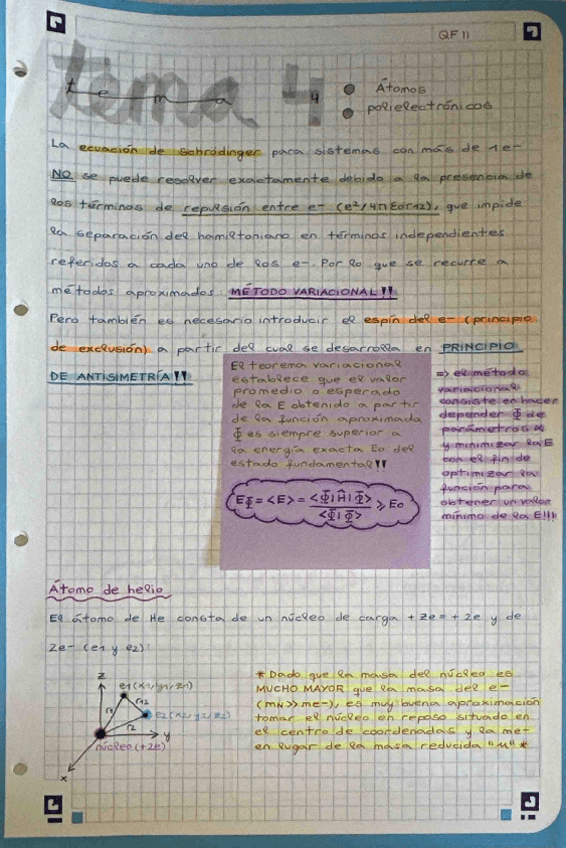 QF11
tema 4
tema 4
Átomos
polielectrónicos
La ecuación de Schrödinger para sistemas con más de 1e-
NO se puede resolver exactamente debido a la presencia de
los términos de repulsión entre e- (e²/4πε0r12), que impide
la separación del hamiltoniano en términos independientes
referidos a cada uno de los e-. Por lo que se recurre a
métodos aproximados: MÉTODO VARIACIONAL!!
Pero también es necesario introducir el espín del e- (principio
de exclusión) a partir del cual se desarrolla en PRINCIPIO
DE ANTISIMETRÍA!!
El teorema variacional
establece que el valor
promedio o esperado
de la E obtenido a partir
de la función aproximada
Φ es siempre superior a
la energía exacta E0 del
estado fundamental!!
EΦ = <E> = <Φ|Ĥ|Φ> / <Φ|Φ> ≥ E0
=> el método
variacional
consiste en hacer
depender Φ de
parámetros α
y minimizar la E
con el fin de
optimizar la
función para
obtener un valor
mínimo de la E!!!
Átomo de helio
El átomo de He consta de un núcleo de carga +Ze = +2e y de
2e- (e1 y e2):
z
e1(x1,y1,z1)
r12
r1
e2(x2,y2,z2)
r2
y
núcleo(+2e)
x
* Dado que la masa del núcleo es
MUCHO MAYOR que la masa del e-
(mN>>me-), es muy buena aproximación
tomar el núcleo en reposo situado en
el centro de coordenadas y la me-
en lugar de la masa reducida "μ" *